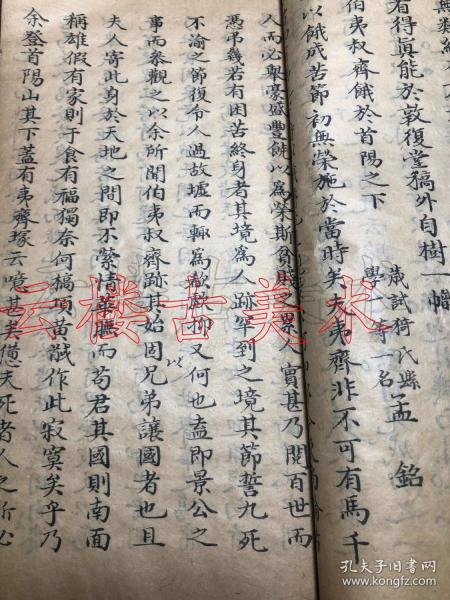 無類
者得真能於敦復堂稿外自樹一幟
歲試猗氏縣學一等一名 孟銘
伯夷叔齊餓於首陽之下
以餓成苦節初無榮施於當時矣夫夷齊非不可有馬千
人而必舉豪盛豐饒以為榮斯貧賤之累人實甚乃閱百世而
憑弔幾若有困苦終身者其境為人跡罕到之境其節誓九死
不渝之節復令人過故墟而輒為歔欷抑又何也盍即景公之
事而參觀之以余所聞伯夷叔齊跡其始固兄弟讓國者也且
夫人寄此身於天地之間即不縈情華膴而苟君其國則南面
稱雄假有家則于食有福獨奈何槁項黃馘作此寂寞矣乎乃
余登首陽山其下蓋有夷齊塚云噫甚矣憊夫死者人之所必
以
云楼古美术
孔夫子旧书网
www.kongfz.com